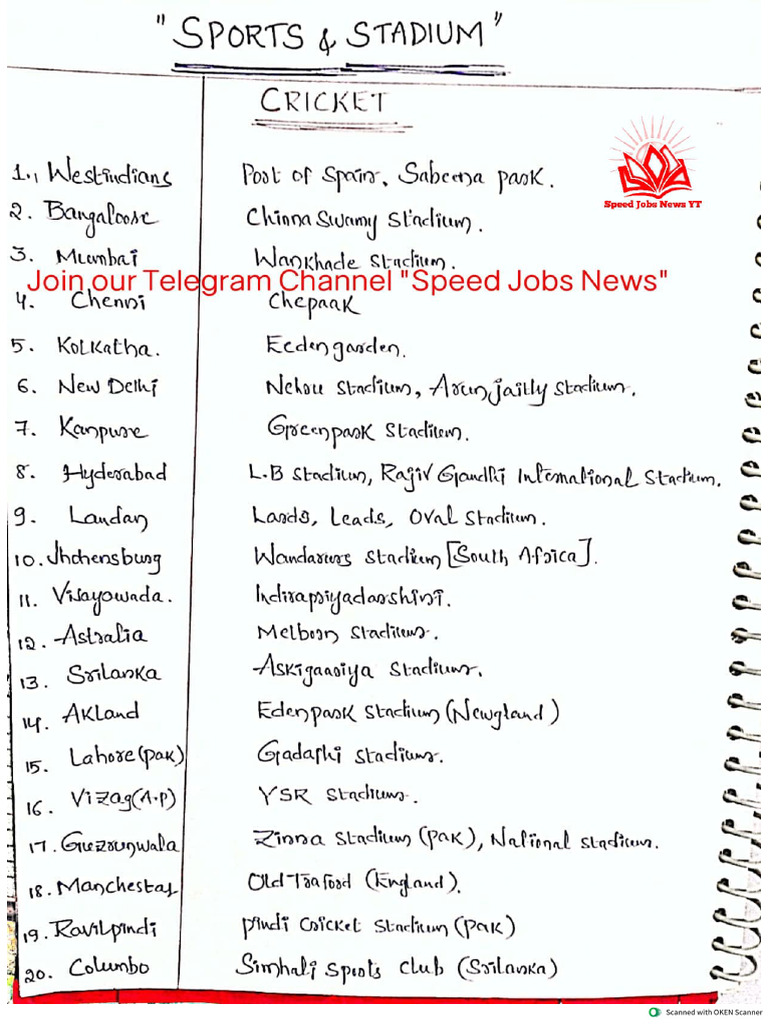 "SPORTS & STADIUM"
CRICKET
Speed Jobs News YT
1., Westindians Post of Spain, Sabeena park.
2. Bangaloose Chinna Swamy Stadium.
3. Mumbai Wankhade Stadium.
Join our Telegram Channel "Speed Jobs News"
4. Chenni Chepaak
5. Kolkatha. Eedengarden.
6. New Delhi Nehru Stadium, Arun jaitly Stadium.
7. Kanpure Greenpark Stadium.
8. Hyderabad L.B Stadium, Rajiv Gandhi International Stadium.
9. Landan Lards, Leads, Oval Stadium.
10. Jhchensburg Wandarurs Stadium [South Africa].
11. Visayowada. Indirapriyadarshini.
12. Astralia Melborn Stadium.
13. Srilanka Askigaariya Stadium.
14. Akland Edenpark Stadium (Newgland)
15. Lahore (pak) Gadafhi Stadium.
16. Vizag (A.p) YSR Stadium.
17. Guzrunwala Zinna Stadium (pak), National Stadium.
18. Manchestar Old Traford (England).
19. Ravilpindi pindi Cricket Stadium (pak)
20. Columbo Simhali Sports Club (Srilanka)
Scanned with OKEN Scanner